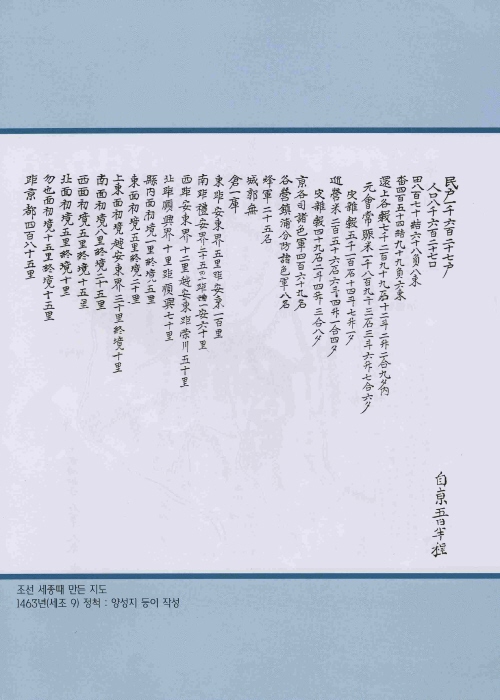 民戶一千六百二十七戶
人口八千六百二十七口
田八百七十結六十八負八束
畓四百五十四結九十九負六束
還上各穀七千二百九十九石十二斗二升二合九夕內
元會常賑米一千八百九十三石三斗六升七合六夕
皮雜穀五千一百石十四斗七升一夕
巡營米二百五十六石六斗四升一合四夕
皮雜穀四十九石二斗四升三合八夕
京各司諸色軍四百六十九名
各營鎭浦分防諸色軍八名
烽軍二十五名
城郭無
倉一庫
東距安東界五里距安東一百里
南距禮安界二十五里距禮安六十里
西距安東界十二里越安東距榮川五十里
北距順興界十里距順興七十里
縣內面初境一里終境五里
東面初境五里終境二十里
上東面初境越安東界三十里終境十里
南面初境八里終境二十五里
西面初境五里終境十五里
北面初境五里終境十里
勿也面初境十五里終境十五里
距京都四百八十五里
自京五日半程
조선 세종때 만든 지도
1463년(세조 9) 정척 : 양성지 등이 작성